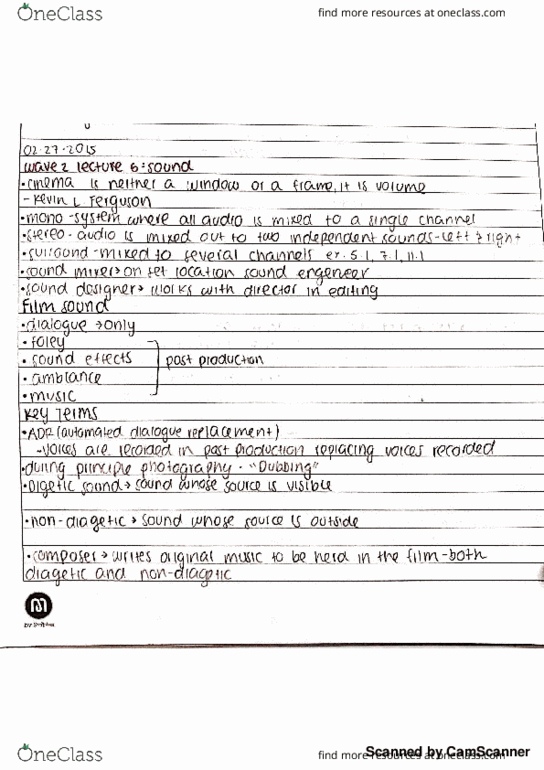 OneClass
find more resources at oneclass.com
02.27.2015
wave 2 lecture 6: sound
•cinema is neither a window or a frame, it is volume
- Kevin L Ferguson
•mono -system where all audio is mixed to a single channel
•stereo - audio is mixed out to two independent sounds-left & right
•surround -mixed to several channels ex. 5.1, 7.1, 11.1
•sound mixer→on set location sound engeneer
•sound designer→ works with director in editing
film sound
•dialogue →only
• foley
• sound effects
post production
• ambiance
• music
Key Terms
•ADR (automated dialogue replacement)
-voices are recorded in post production replacing voices recorded
•during principle photography - "Dubbing"
•Digetic sound→ sound whose source is visible
•non-diagetic → sound whose source is outside
•composer → writes original music to be herd in the film-both
diagetic and non-diagetic
M
OneClass
find more resources at oneclass.com
Scanned by CamScanner